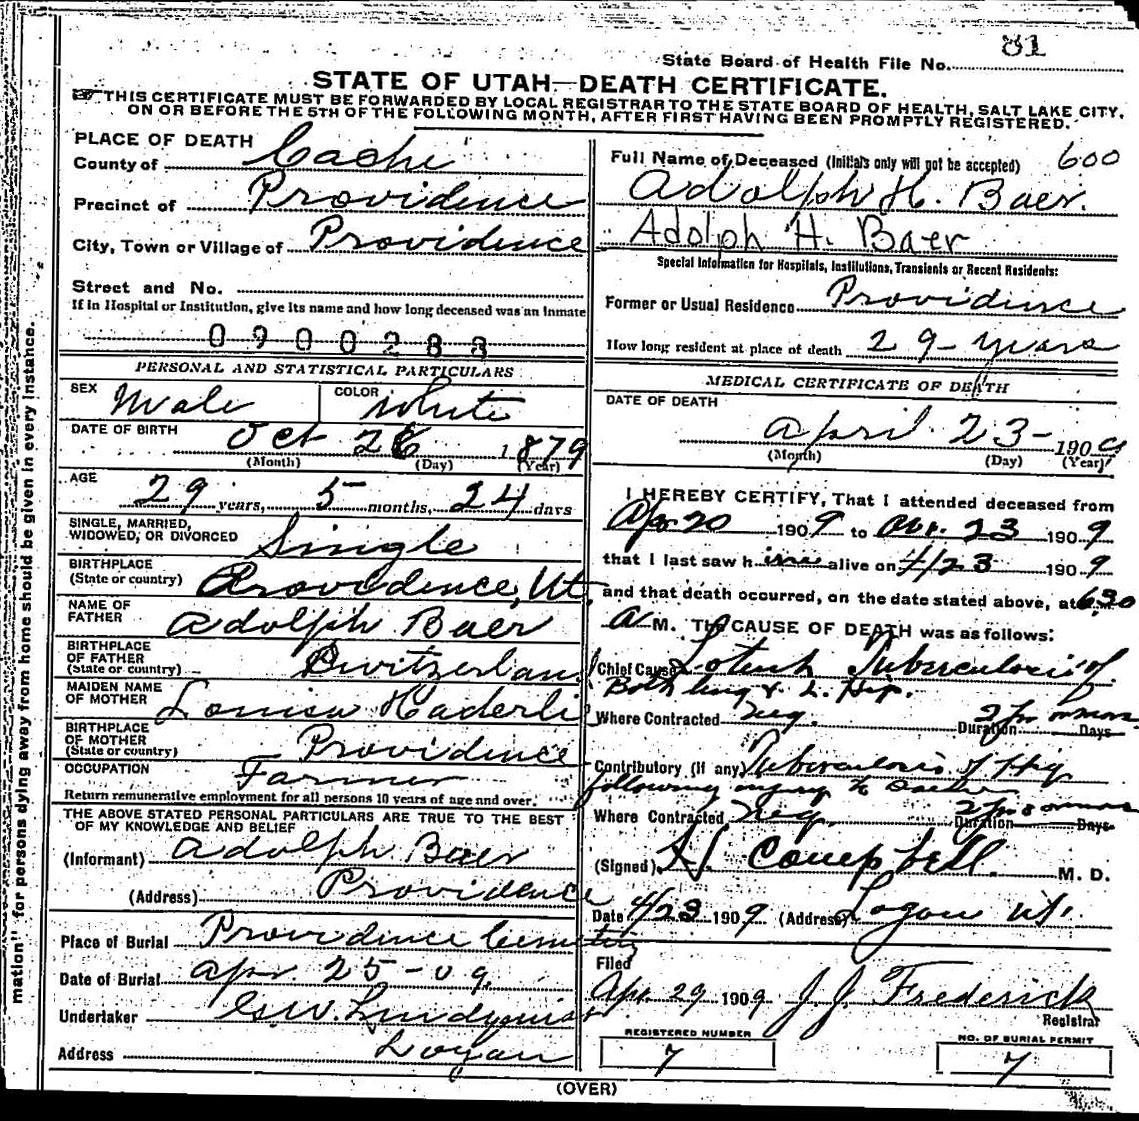 81
State Board of Health File No.
STATE OF UTAH—DEATH CERTIFICATE.
THIS CERTIFICATE MUST BE FORWARDED BY LOCAL REGISTRAR TO THE STATE BOARD OF HEALTH, SALT LAKE CITY,
ON OR BEFORE THE 5TH OF THE FOLLOWING MONTH, AFTER FIRST HAVING BEEN PROMPTLY REGISTERED.
PLACE OF DEATH
County of Cache
Precinct of Providence
City, Town or Village of Providence
Street and No.
If in Hospital or Institution, give its name and how long deceased was an inmate
0900283
PERSONAL AND STATISTICAL PARTICULARS
SEX Male COLOR White
DATE OF BIRTH Oct 26 1879
(Month) (Day) (Year)
AGE 29 years, 5 months, 24 days
SINGLE, MARRIED,
WIDOWED, OR DIVORCED Single
BIRTHPLACE
(State or country) Providence, Ut.
NAME OF
FATHER Adolph Baer
BIRTHPLACE
OF FATHER
(State or country) Switzerland
MAIDEN NAME
OF MOTHER Louisa Haderli
BIRTHPLACE
OF MOTHER
(State or country) Providence
OCCUPATION Farmer
Return remunerative employment for all persons 10 years of age and over.
THE ABOVE STATED PERSONAL PARTICULARS ARE TRUE TO THE BEST
OF MY KNOWLEDGE AND BELIEF
(Informant) Adolph Baer
(Address) Providence
Place of Burial Providence Cemetery
Date of Burial Apr. 25-09.
Undertaker Lindquist
Address Logan
Full Name of Deceased (Initials only will not be accepted) 600
Adolph H. Baer.
Adolph H. Baer
Special Information for Hospitals, Institutions, Transients or Recent Residents:
Former or Usual Residence Providence
How long resident at place of death 29-years
MEDICAL CERTIFICATE OF DEATH
DATE OF DEATH
April 23-1909
(Month) (Day) (Year)
I HEREBY CERTIFY, That I attended deceased from
Apr. 20 1909 to Apr. 23 1909
that I last saw him alive on 4/23 1909
and that death occurred, on the date stated above, at 6:30
A M. The CAUSE OF DEATH was as follows:
Chief Cause Tuberculosis of
Both lung & L. Hip.
Where Contracted Duration Days
Contributory (if any) Tuberculosis of Hip
following injury to
Where Contracted Duration Days
(Signed) Campbell M. D.
Date 4/23 1909 (Address) Logan Ut.
Filed
Apr. 29 1909 J. J. Frederick
Registrar
REGISTERED NUMBER
7
NO. OF BURIAL PERMIT
7
(OVER)
mation" for persons dying away from home should be given in every instance.